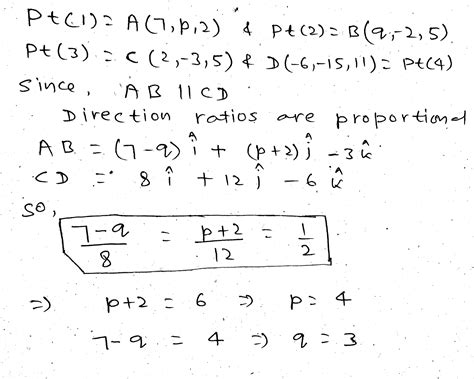 Pt(1) = A(7,p,2) & Pt(2) = B(q,-2,5)
Pt(3) = C (2,-3,5) & D(-6,-15,11) = Pt(4)
Since, AB || CD
Direction ratios are proportional
AB = (7-q) î + (p+2) ĵ - 3 k̂
CD = 8 î + 12 ĵ - 6 k̂
so,
7-q/8 = p+2/12 = 1/2
=> p+2 = 6 => p = 4
7-q = 4 => q = 3